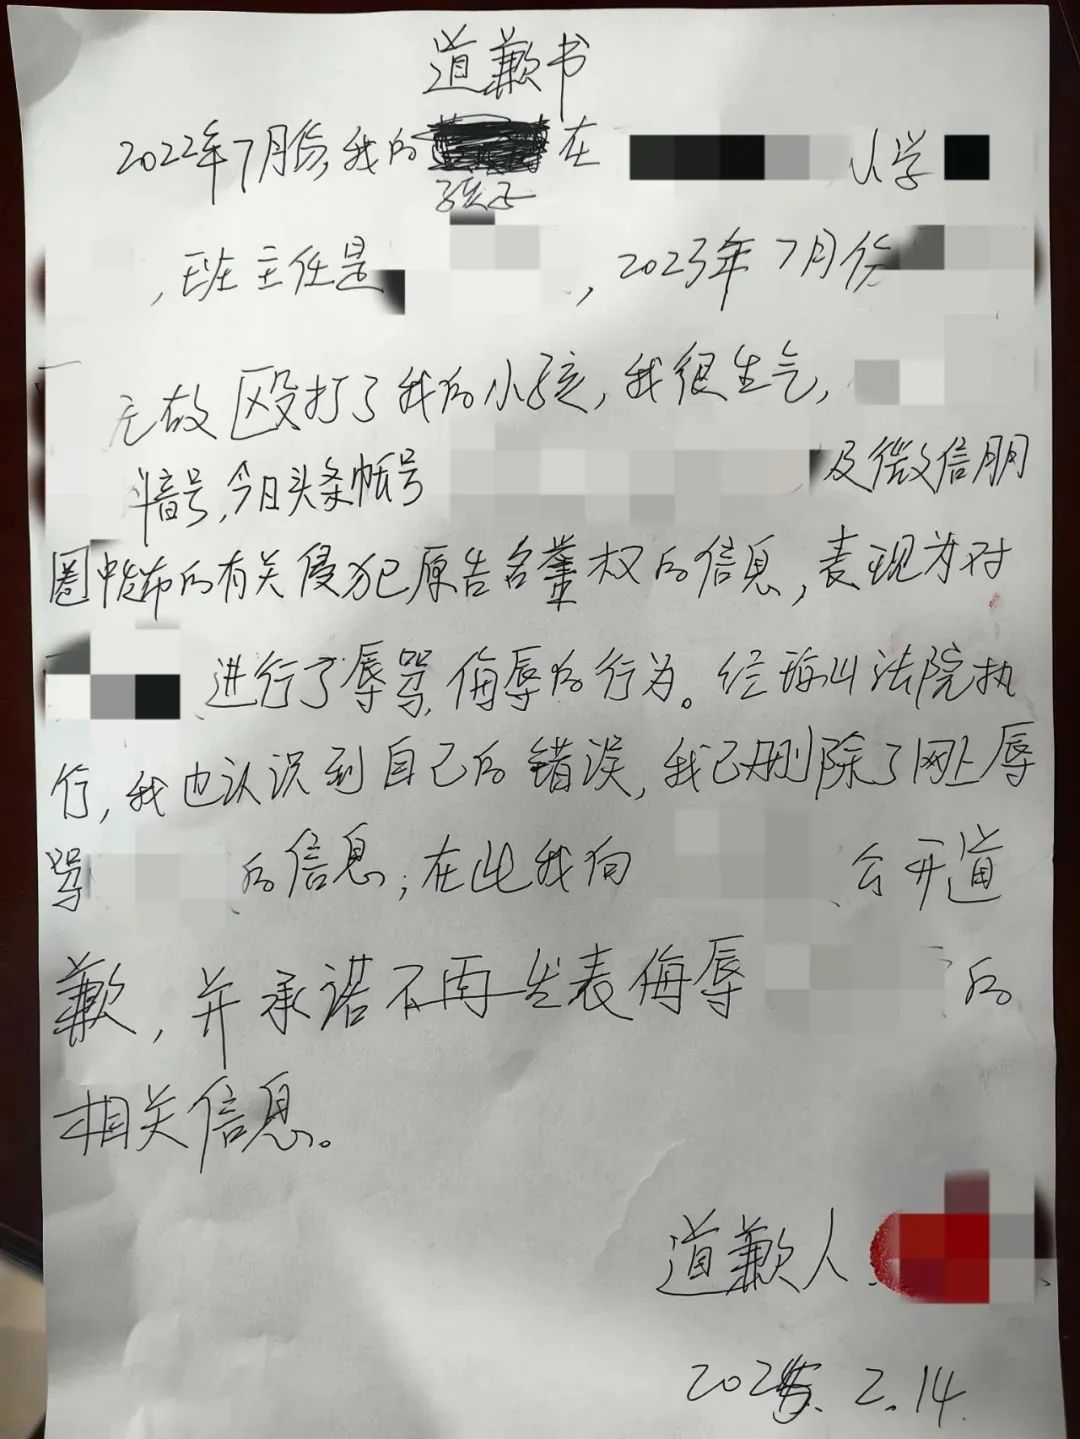 道歉书
2022年7月份,我的在 小学
孩子
,班主任是 ,2023年7月份
无故殴打了我的小孩,我很生气,
抖音号,今日头条帐号 及微信朋
圈中发布的有关侵犯原告名誉权的信息,表现为对
进行了辱骂,侮辱的行为。经 法院执
行,我也认识到自己的错误,我已删除了网上辱
骂 的信息;在此我向 公开道
歉,并承诺不再发表侮辱 的
相关信息。
道歉人
2025.2.14